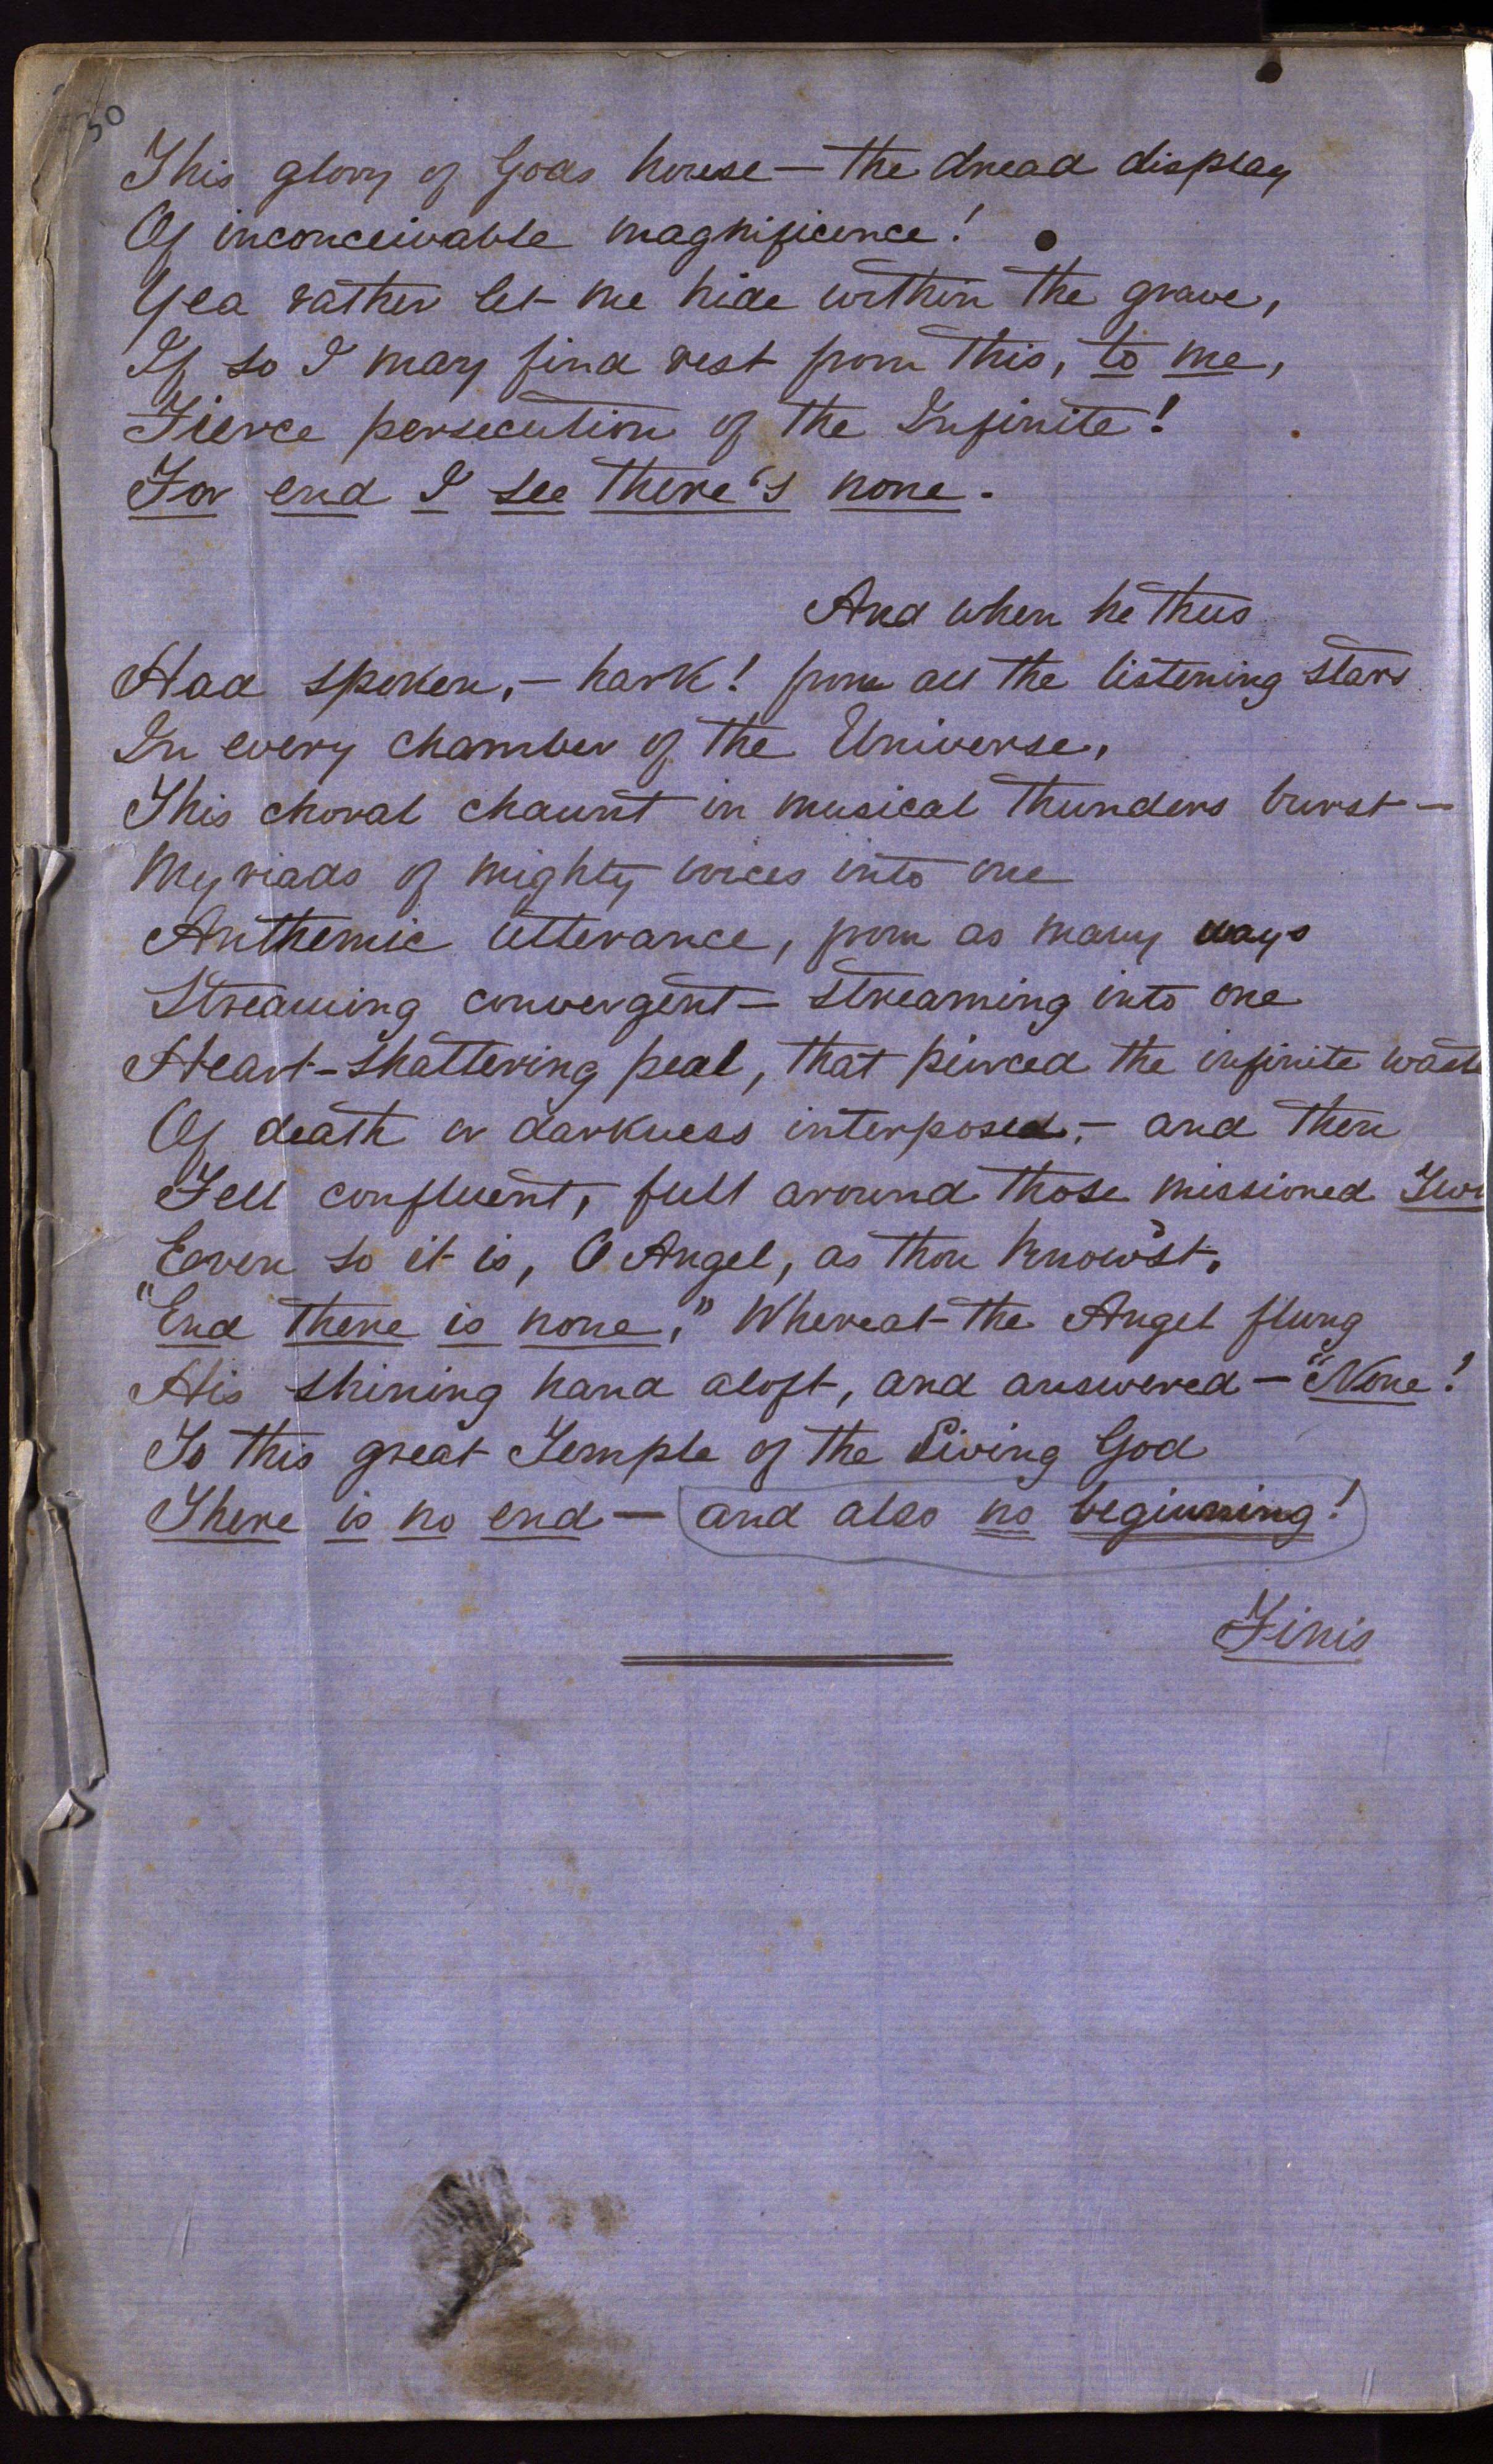 50
This glory of Gods house — the dread display
Of inconceivable magnificence!
Yea rather let me hide within the grave,
If so I may find rest from this, to me,
Fierce persecution of the Infinite!
For end I see there's none.
And when he thus
Had spoken, — hark! from all the listening stars
In every chamber of the Universe,
This choral chaunt in musical thunders burst —
Myriads of mighty voices into one
Anthemic utterance, from as many ways
Streaming convergent — streaming into one
Heart-shattering peal, that pierced the infinite waste
Of death or darkness interposed, — and then
Fell confluent, full around those missioned Two
Even so it is, O Angel, as thou know'st,
"End there is none," Whereat the Angel flung
His shining hand aloft, and answered — "None!
To this great Temple of the Living God
There is no end — and also no beginning!
Finis